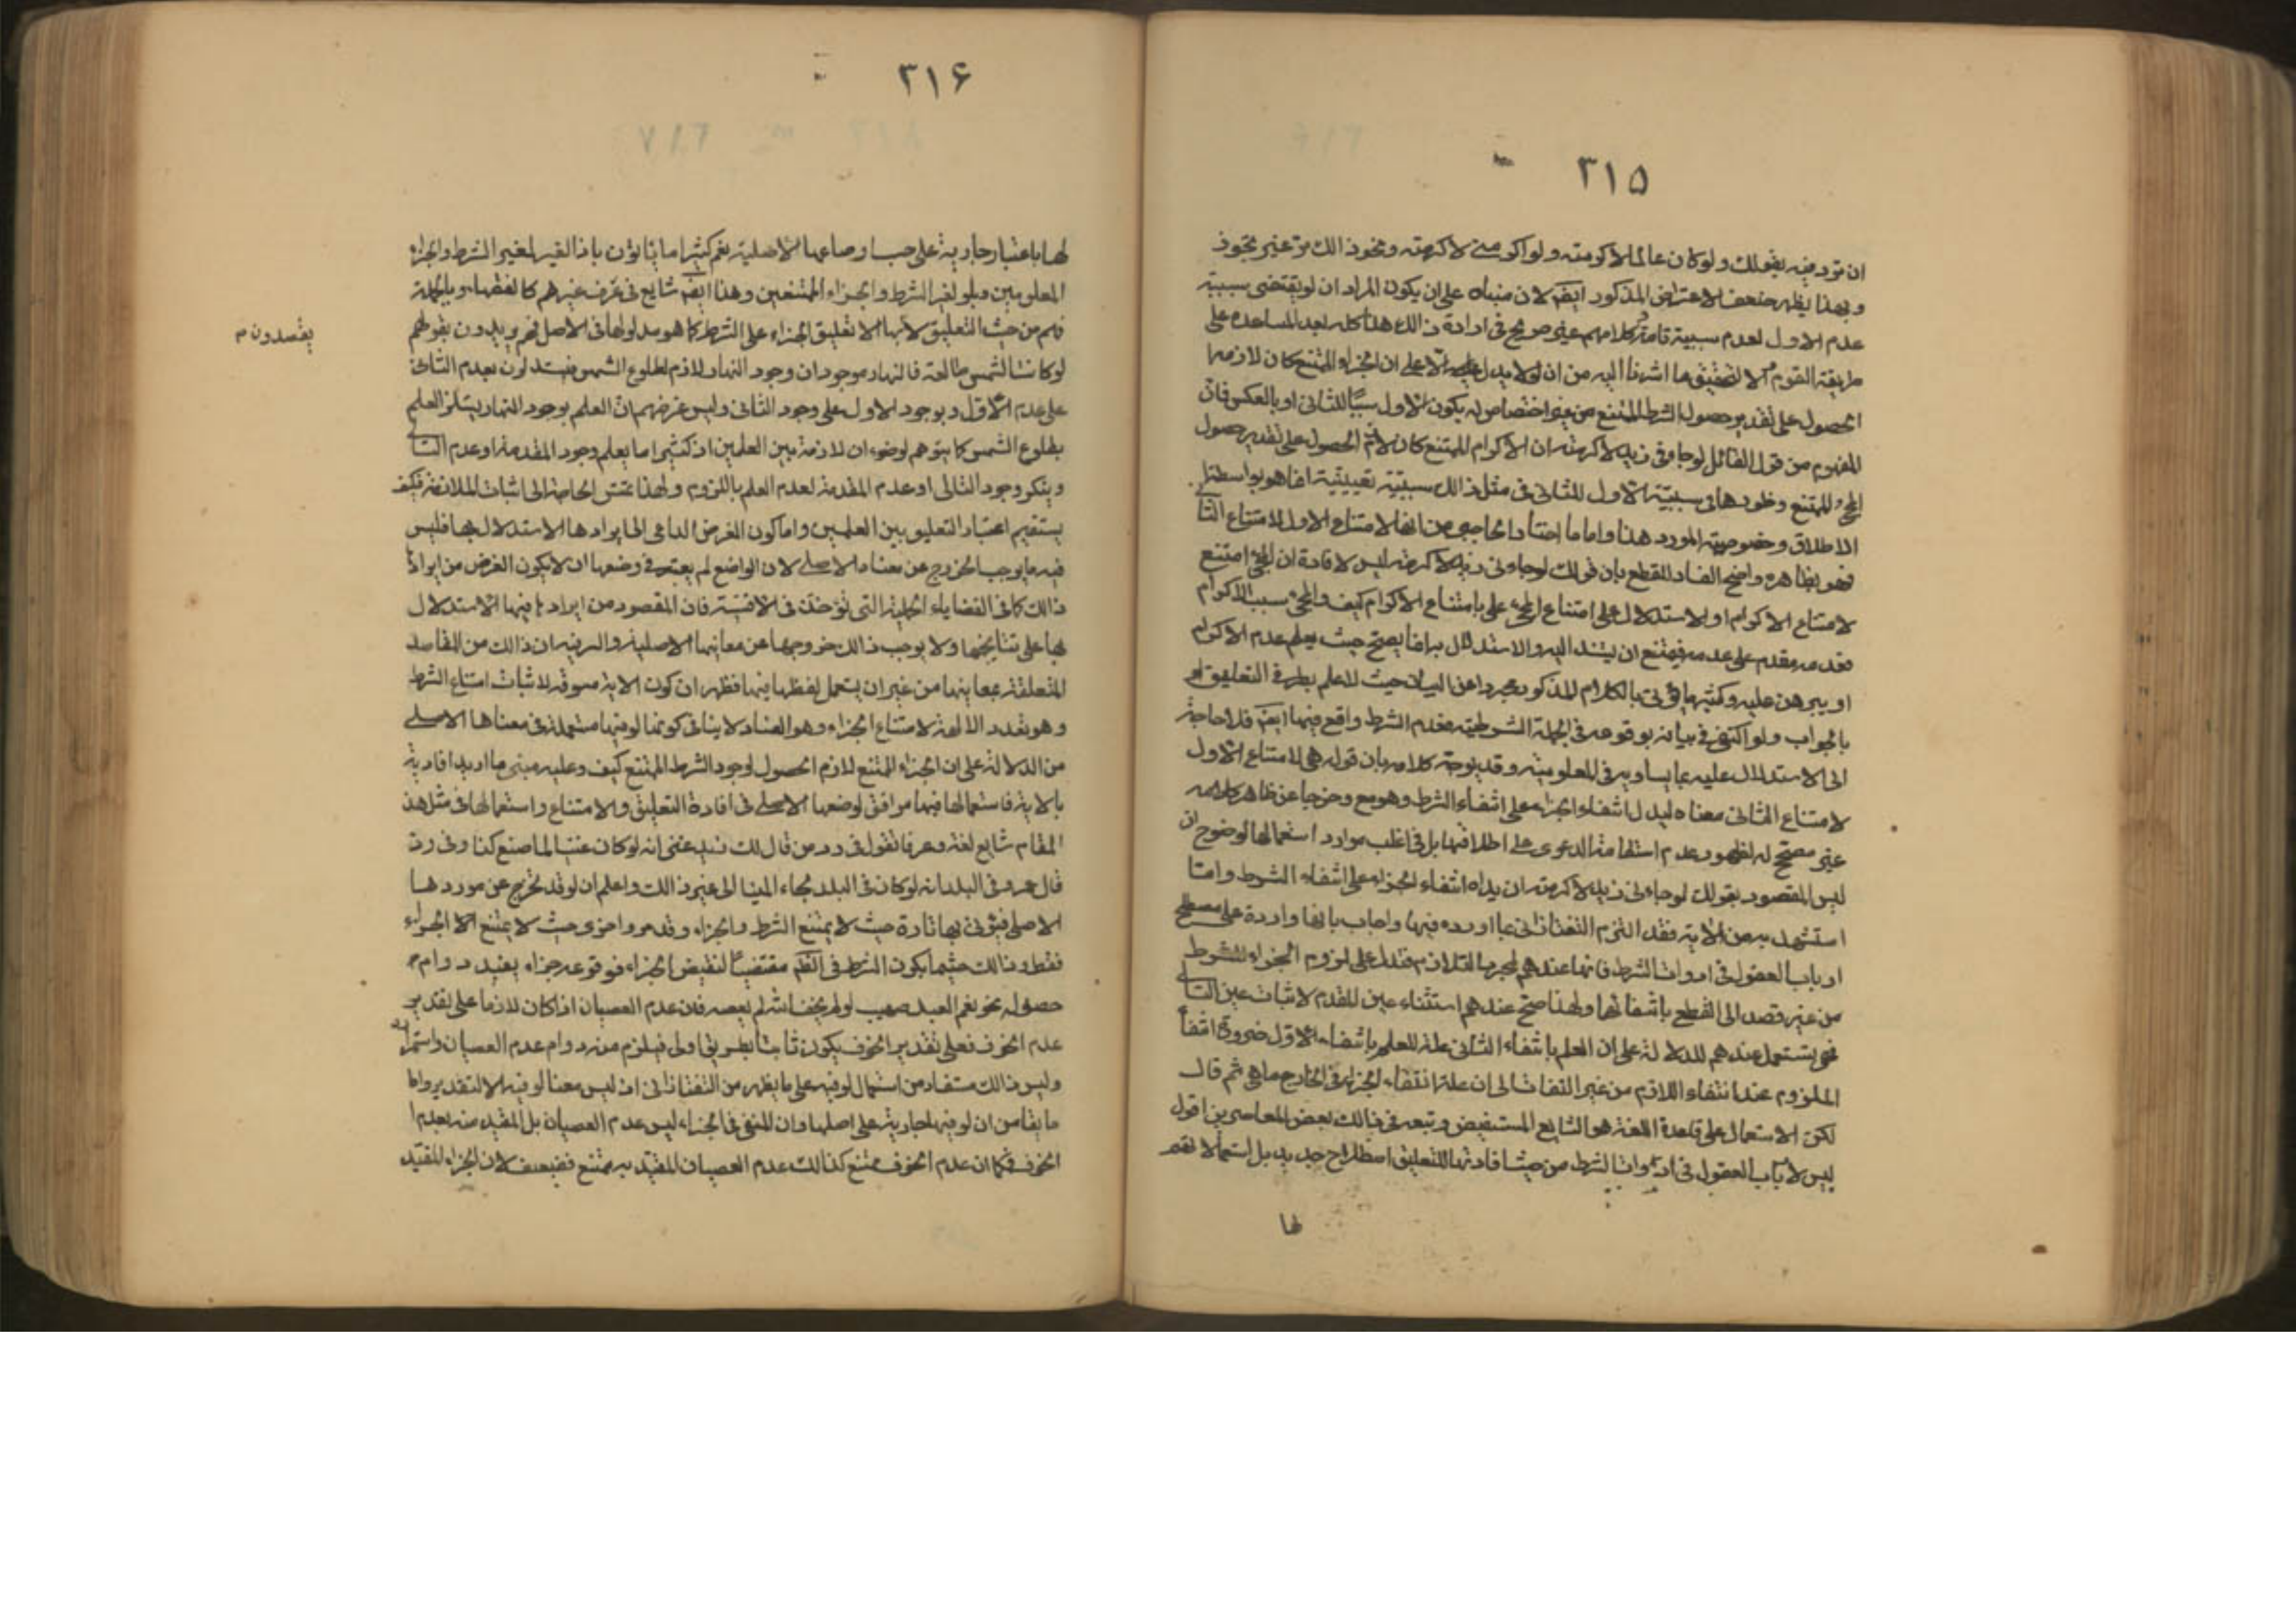 ٣١۵
ان تردفيه بقولك ولو كان عالما لاكرمته ولو اكرمنى لاكرمته ونحو ذالك من غير تجوز
وبهذا يظهر ضعف الاعتراض المذكور ايضا لان مبناه على ان يكون المراد ان لو يقتضى سببية
عدم الاول لعدم سببية تامة وكلامهم غير صريح فى ارادة ذالك هذا كله بعد المساعدة على
طريقة القوم والا فالتحقيق ما اشرنا اليه من ان لو لا يدل الا على ان الجزاء الممتنع كان لازم
الحصول على تقدير حصول الشرط الممتنع من غير اختصاص له بكون الاول سببا للثانى او بالعكس فان
المفهوم من قول القائل لو جاءنى زيد لاكرمته ان الاكرام الممتنع كان لازم الحصول على تقدير حصول
المجئ الممتنع وظهورها فى سببية الاول للثانى فى مثل ذالك سببية انما هو بواسطة
الاطلاق وخصوصية المورد هذا واما ما اختاره الحاجبى من انها لامتناع الاول لامتناع الثا
فهو بظاهره واضح الفساد للقطع بان قولك لو جاءنى زيد لاكرمته ليس لافادة ان المجئ امتنع
لامتناع الاكرام او للاستدلال على امتناع المجئ بامتناع الاكرام كيف والمجئ سبب للاكرام
فعدمه مقدم على عدمه فيمتنع ان يستند اليه والاستدلال به انما يصح حيث يعلم عدم الاكرام
او يبرهن عليه وكثيرا ما يؤتى بالكلام المذكور مجردا عن البيان حيث لا علم بطرفى التعليق
بالجواب ولو اكتفى فى بيانه بوقوعه فى الجملة الشرطية فعدم الشرط واقع فيها ايضا فلا حاجة
الى الاستدلال عليه بما يساويه فى المعلومية وقد يوجه كلامه بان قوله هى لامتناع الاول
لامتناع الثانى معناه ليدل انتفاء الجزاء على انتفاء الشرط وهو مع خروجه عن ظاهر كلامه
غير مصحح له لظهور عدم استقامة الدعوى على اطلاقها بل فى اغلب موارد استعمالها لوضوح ان
ليس المقصود بقولك لو جاءنى زيد لاكرمته ان يدل انتفاء الجزاء على انتفاء الشرط واما
استشهد به من الاية فقد التزم التفتازانى بما اورده فيها واجاب بانها واردة على مصطلح
ارباب العقول فى ادوات الشرط فانها عندهم لمجرد التلازم فتدل على لزوم الجزاء للشرط
من غير قصد الى القطع بانتفائهما ولهذا صح عندهم استثناء عين المقدم لاثبات عين التا
فهى تستعمل عندهم للدلالة على ان العلم بانتفاء الثانى علة للعلم بانتفاء الاول ضرورة انتفأ
الملزوم عند انتفاء اللازم من غير التفات الى ان علة انتفاء الجزاء فى الخارج ماهى ثم قال
لكن الاستعمال على قاعدة اللغة هو الشايع المستفيض وتبعه فى ذالك بعض المعاصرين اقول
ليس لارباب العقول فى ادوات الشرط من حيث افادتها للتعليق اصطلاح جديد بل استعمالاتهم
لها
٣١۶
لها باعتبار جارية على حسب اوضاعها الاصلية نعم كثيرا ما ياتون باذا لغير الشرط والجزاء
المعلومين وبلو لغير الشرط والجزاء الممتنعين وهذا ايضا شايع فى عرف غيرهم كالفقهاء وبالجملة
فلم من حيث التعليق لانها الا تعليق الجزاء على الشرط كما هو مدلولها فى الاصل فهم يريدون بقولهم
يفسدون م
لو كانت الشمس طالعة فالنهار موجود ان وجود النهار لازم لطلوع الشمس فيستدلون بعدم الثانى
على عدم الاول وبوجود الاول على وجود الثانى وليس غرضهم ان العلم بوجود النهار يستلزم العلم
بطلوع الشمس كما يتوهم لوضوح ان لا ملازمة بين العلمين اذ كثيرا ما يعلم وجود المقدمة او عدم التا
وينكر وجود التالى او عدم المقدمة لعدم العلم باللزوم ولهذا تمس الحاجة الى اثبات الملازمة فكيف
يستقيم اعتبار التعليق بين العلمين واما كون الغرض الداعى الى ايرادها الاستدلال بها فليس
فيه ما يوجب الخروج عن معناه الاصلى لان الواضع لم يعتبر فى وضعها ان لا يكون الغرض من ايراد
ذالك كما فى القضايا الحملية التى تؤخذ فى الاقيسة فان المقصود من ايرادها فيها الاستدلال
بها على نتايجها ولا يوجب ذالك خروجها عن معانيها الاصلية والسر فيه ان ذالك من المقاصد
المتعلقة بمعانيها من غير ان يستعمل لفظها فيها فظهر ان كون الاية مسوقة لاثبات امتناع الشرط
وهو تعدد الالهة لامتناع الجزاء وهو الفساد لا ينافى كونها لو فيها مستعملة فى معناها الاصلى
من الدلالة على ان الجزاء الممتنع لازم الحصول لوجود الشرط الممتنع كيف وعليه مبنى ما اريد افادته
بالاية فاستعمالها فيها موافق لوضعها الاصلى فى افادة التعليق والامتناع واستعمالها فى مثل هذ
المقام شايع لغة وعرفا تقول فى رد من قال لك زيد غنى انه لو كان غنيا لما صنع كذا وفى رد
قال عمرو فى البلد انه لو كان فى البلد لجاء الينا الى غير ذالك واعلم ان لو قد تخرج عن موردها
الاصلى فيؤتى بها تارة حيث لا يمتنع الشرط والجزاء وقد مر واخرى حيث لا يمتنع الا الجزاء
فقط وذالك حيثما يكون الشرط فى مقتضيا لنقيض الجزاء فوقوعه جزاء يفيد دوام
حصوله نحو نعم العبد صهيب لو لم يخف الله لم يعصه فان عدم العصيان اذا كان لازما على تقدير
عدم الخوف فعلى تقدير الخوف يكون ثابتا بطريق اولى فيلزم منه دوام عدم العصيان واستمراره
وليس ذالك مستفاد من استعمال لو فيه على ما يظهر من التفتازانى اذ ليس معنا لو فيه الا التقدير واما
ما يقا من ان لو فيها جارية على اصلها وان المنفى فى الجزاء ليس عدم العصيان بل المقيد منه بعدم
الخوف فكما ان عدم الخوف ممتنع كذالك عدم العصيان المقيد به ممتنع فضعيف لان الجزاء المقيد